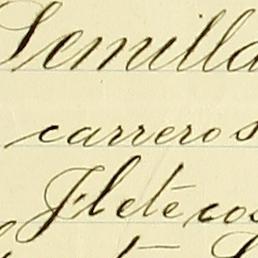 Semilla
carreros
Fletes cos